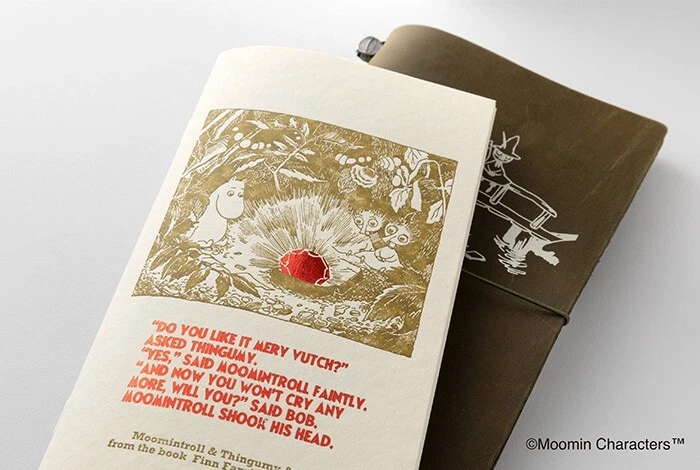 "DO YOU LIKE IT MERY VUTCH?"
ASKED THINGUMY.
"YES," SAID MOOMINTROLL FAINTLY.
"AND NOW YOU WON'T CRY ANY
MORE, WILL YOU?" SAID BOB.
MOOMINTROLL SHOOK HIS HEAD.
Moomintroll & Thingumy &
from the book Finn
©Moomin Characters™